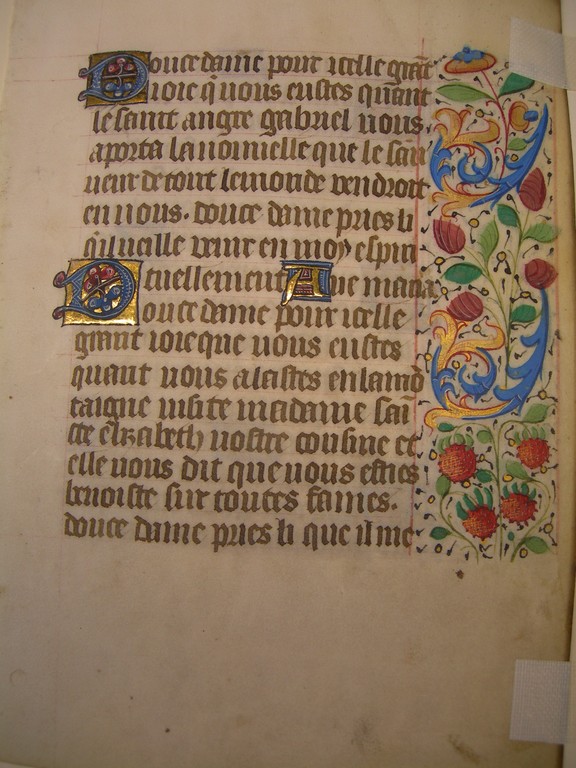 Doulce dame pour icelle grãt
ioie q̃ vous eustes quant
le saint angre gabriel vous
aporta la nouuelle que le sau
ueur de tout le monde vendroit
en vous. douce dame pries li
qu'il ueille venir en moy espiri
tuellement Aue maria
Douce dame pour icelle
grant ioie que vous eustes
quant vous alastes en la mõ
taigne visite madame sai
cte elizabeth vostre cousine et
elle vous dit que vous esties
benoiste sur toutes fames.
douce dame pries li que il me